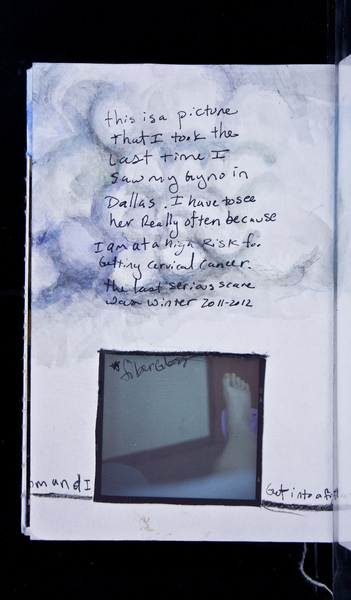 this is a picture
that I took the
last time I
saw my Gyno in
Dallas. I have to see
her Really often because
I am at a high Risk for
Getting Cervical Cancer.
the last serious scare
was winter 2011-2012
m and I
Get into a